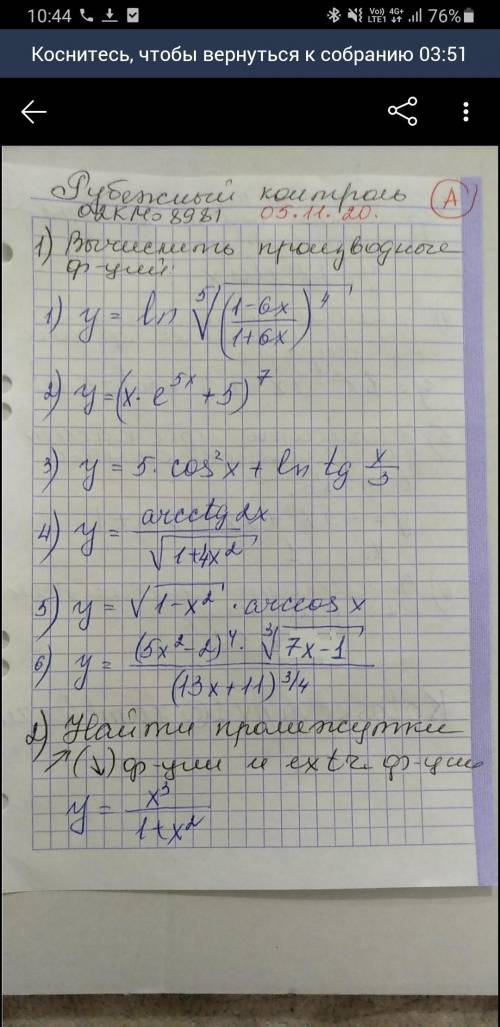 10:44
Vo)) LTE1 4G+ 76%
Коснитесь, чтобы вернуться к собранию 03:51
Рубежный контроль
А
8981 05.11.20.
1) Вычислить производные
ф-ций:
1) y = ln ⁵√((1-6x)/(1+6x))⁴
2) y=(x·e^(5x)+5)⁷
3) y = 5·cos²x + ln tg x/3
4) y = arcctg 2x/√(1+4x²)
5) y = √(1-x²) · arccos x
6) y = (5x²-2)⁴·³√(7x-1)/(13x+11)^(3/4)
2) Найти промежутки
↗(↘) ф-ции и extr. ф-ции
y = x³/(1+x²)